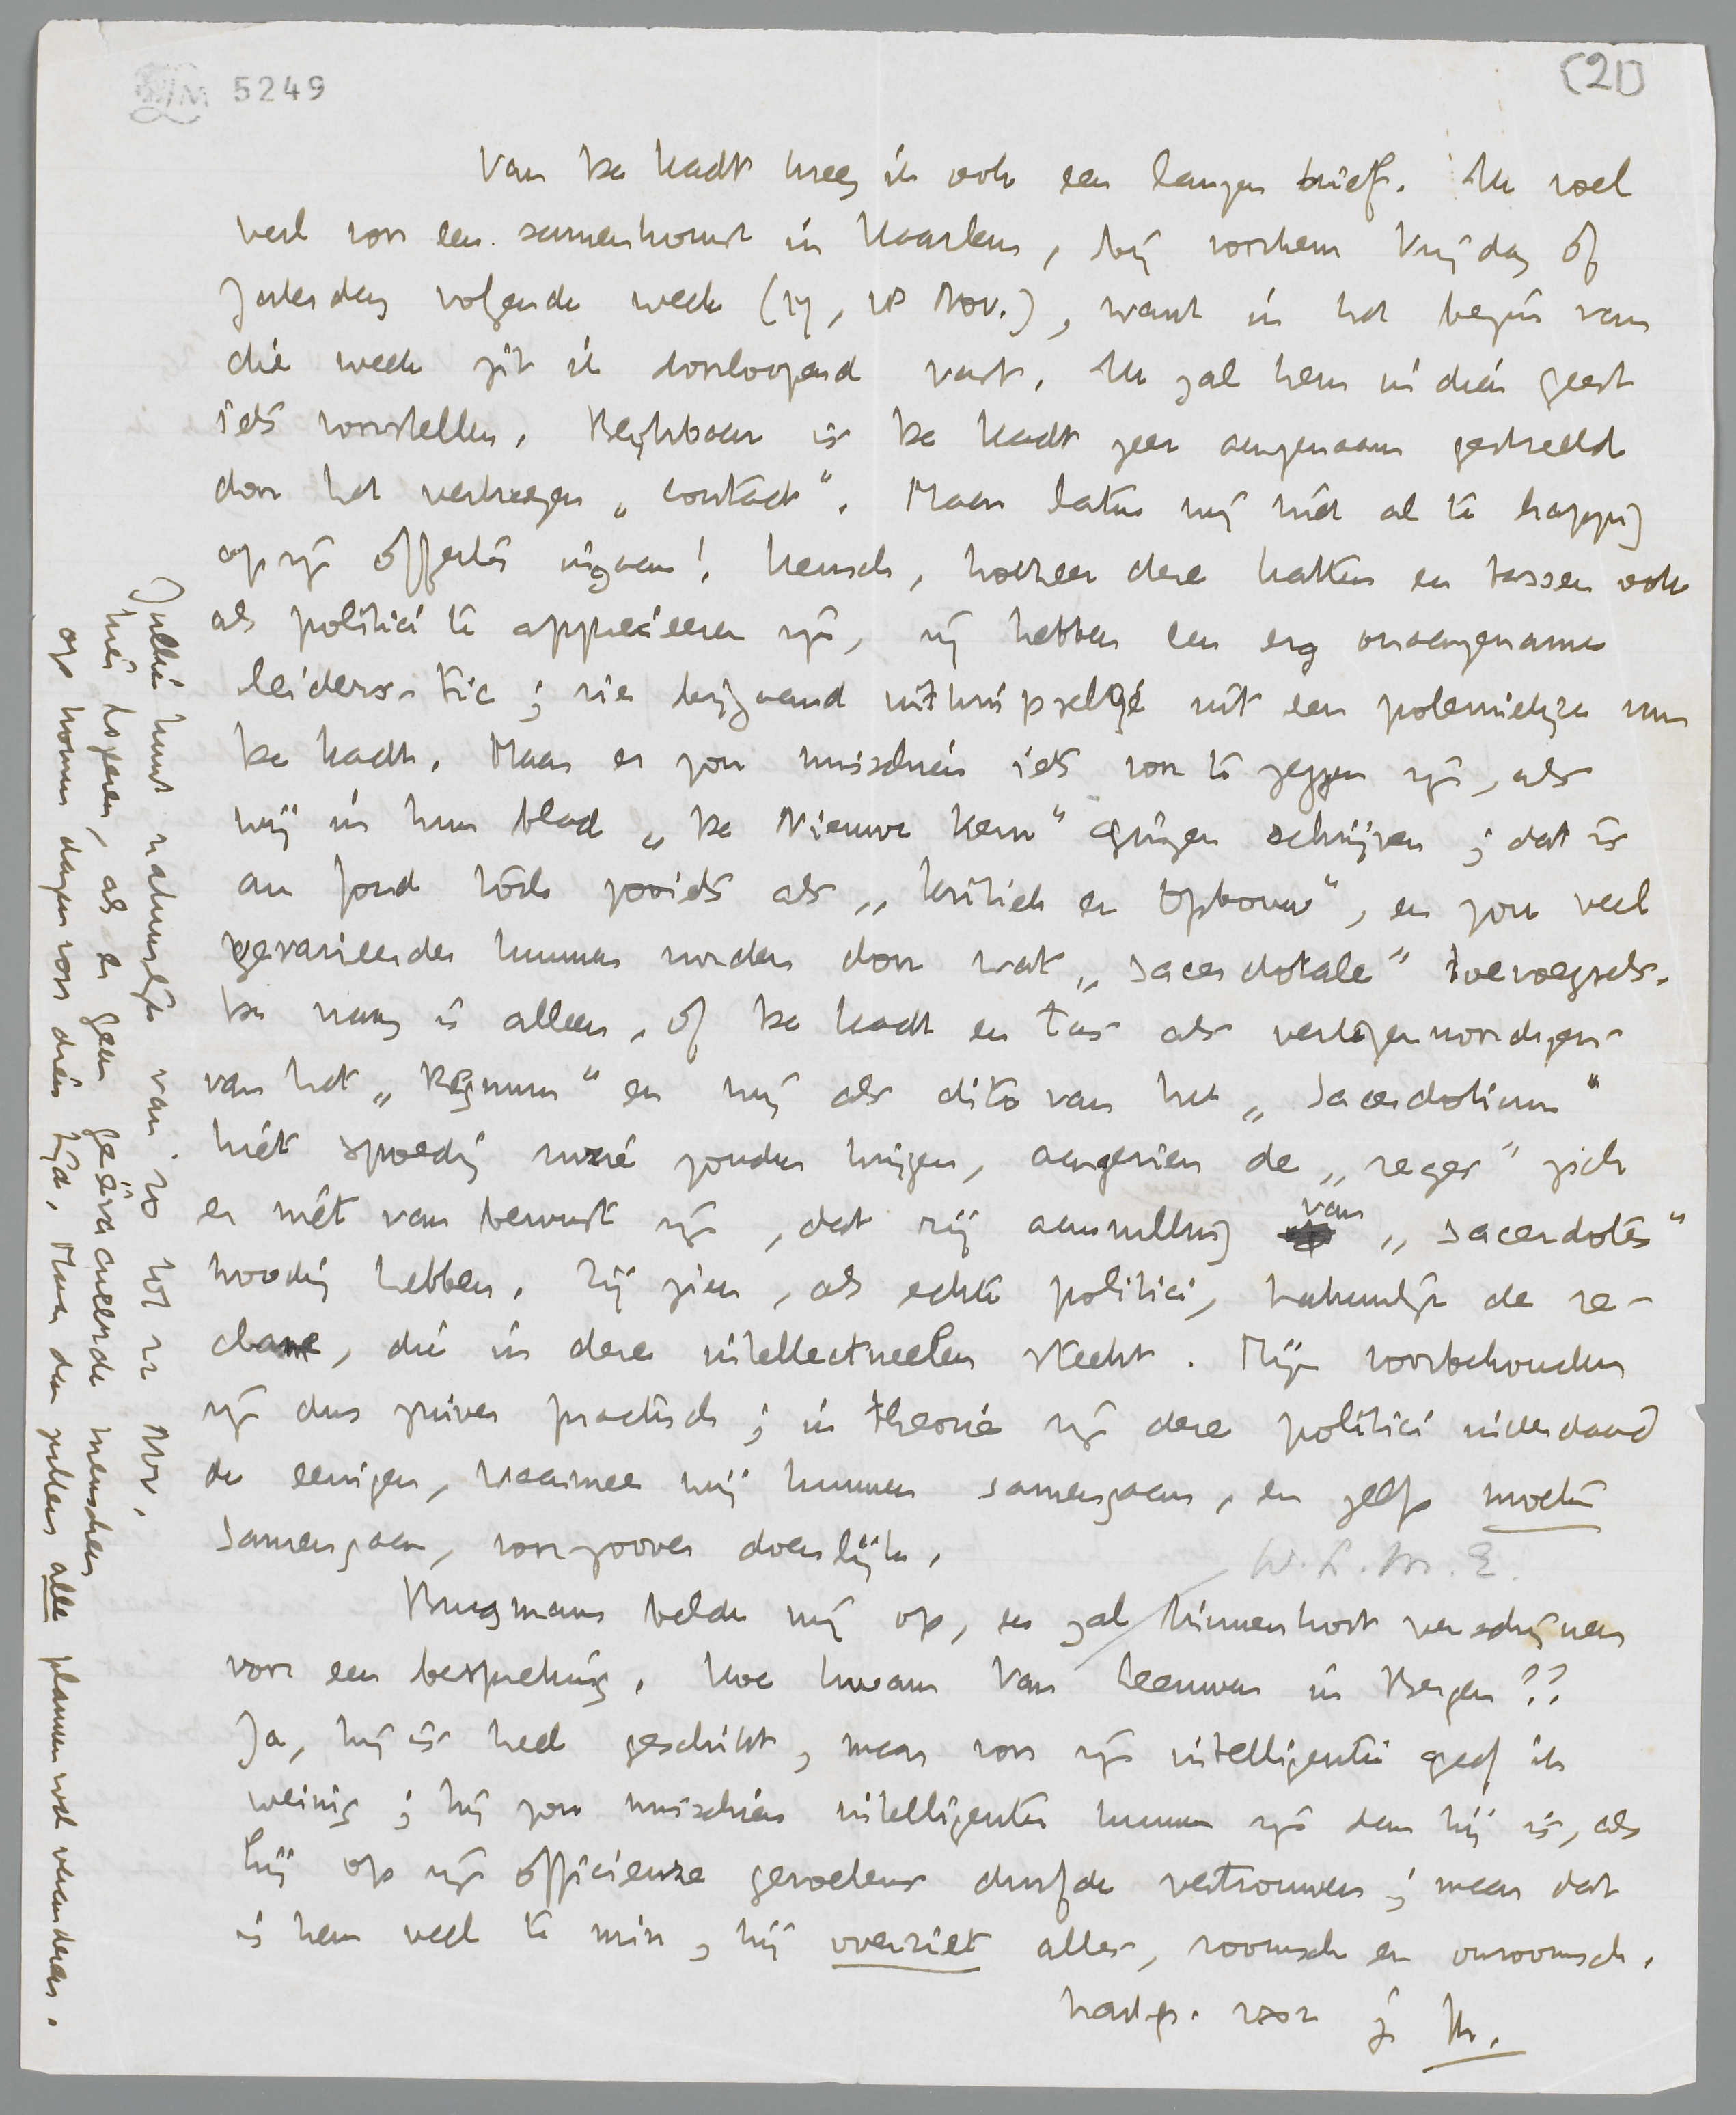 LM 5249
(2)
Van De Kadt kreeg ik ook een langen brief. Ik voel
veel voor een samenkomst in Haarlem, bij voorkeur Vrijdag òf
Zaterdag volgende week (17, 18 Nov.), want in het begin van
die week zit ik doorloopend vast. Ik zal hem in dien geest
iets voorstellen. Blijkbaar is De Kadt zeer aangenaam gestreeld
door het verkregen „contact". Maar laten wij niet al te happig
op zijn offertes ingaan! Heusch, hoezeer deze Katten en Tassen ook
als politici te apprecieeren zijn, zij hebben een erg onaangename
leiders-tic; zie bijgaand uitknipseltje uit een polemiekje van
De Kadt. Maar er zou misschien iets voor te zeggen zijn, als
wij in hun blad „De Nieuwe Kern" gingen schrijven; dat is
au fond toch zooiets als „Kritiek en Opbouw", en zou veel
gevarieerder kunnen worden door wat „sacerdotale" toevoegsels.
De vraag is alleen, of De Kadt en Tas als vertegenwoordigers
van het „Regnum" en wij als dito van het „Sacerdotium"
niet spoedig ruzie zouden krijgen, aangezien de „reges" zich
er niet van bewust zijn, dat zij aanvulling van „sacerdotes"
noodig hebben. Zij zien, als echte politici, natuurlijk de re-
clame, die in deze intellectueelen steekt. Mijn voorbehouden
zijn dus zuiver practisch; in theorie zijn deze politici inderdaad
de eenigen, waarmee wij kunnen samengaan, en zelfs moeten
samengaan, voorzoover doenlijk.
W. L. M. E.
Brugmans belde mij op, en zal binnenkort verschijnen
voor een bespreking. Hoe kwam Van Leeuwen in Bergen??
Ja, hij is heel geschikt, maar voor zijn intelligentie geef ik
weinig; hij zou misschien intelligenter kunnen zijn dan hij is, als
hij op zijn officieuze gevoelens durfde vertrouwen; maar dat
is hem veel te min, hij overziet alles, roomsch en onroomsch.
hart. gr. voor je M.
Jullie kunt natuurlijk van 20 tot 22 Nov.
hier logeeren, als er geen geëvacueerde menschen
op komen dagen voor dien tijd. Maar dan zullen alle plannen wel veranderen.